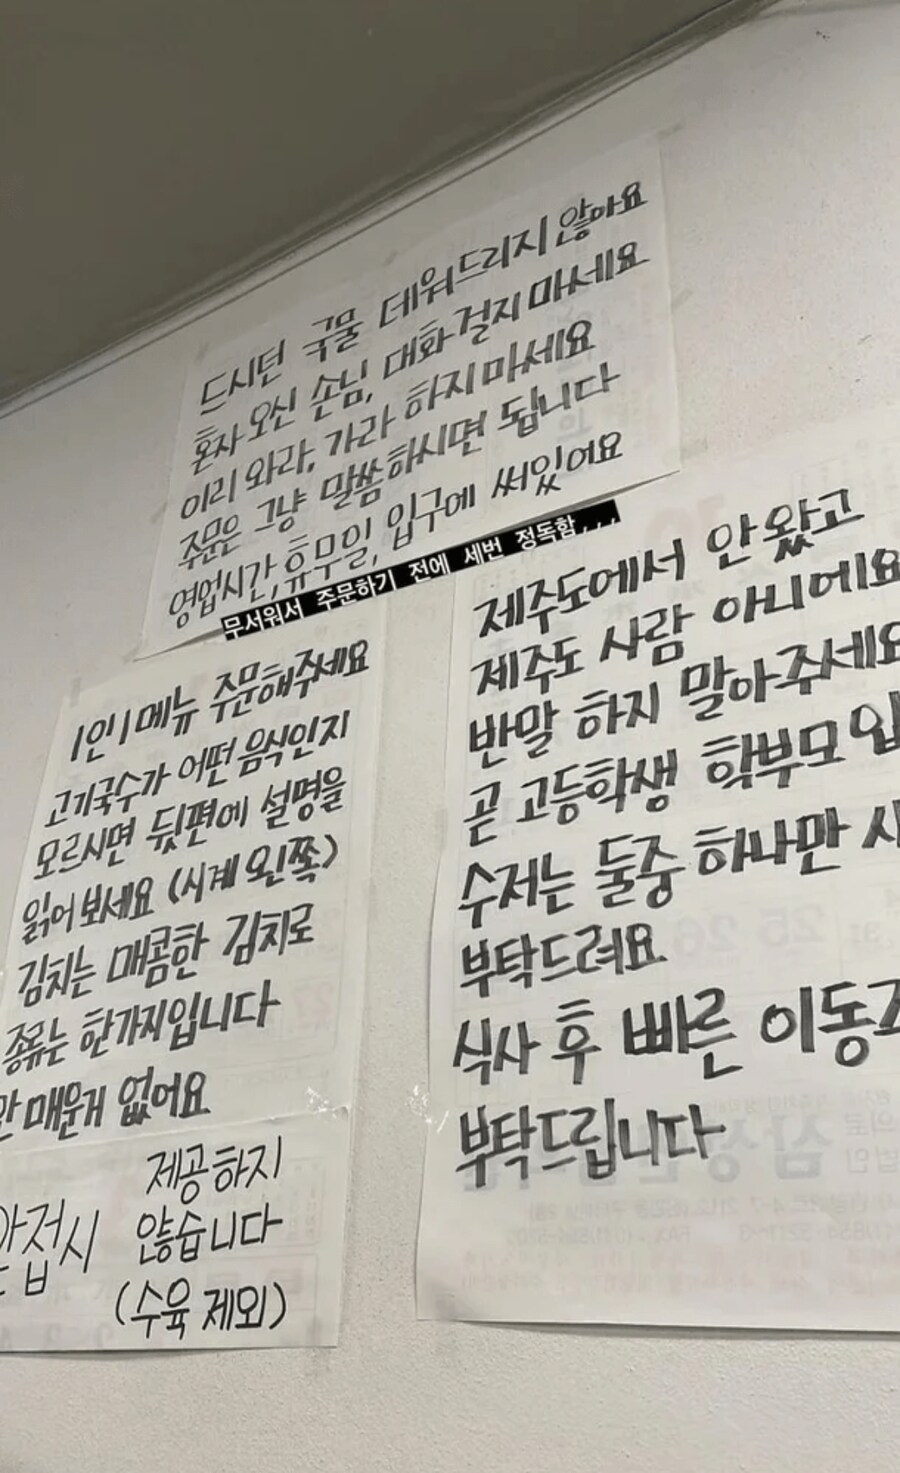 드시던 국물 데워드리지 않아요
혼자 오신 손님, 대화 걸지 마세요
이리 와라, 가라 하지 마세요
주문은 그냥 말씀하시면 됩니다
영업시간, 휴무일, 입구에 써있어요
무서워서 주문하기 전에 세번 정독함...
1인 1메뉴 주문해주세요
고기국수가 어떤 음식인지
모르시면 뒷편에 설명을
읽어 보세요 (시계 왼쪽)
김치는 매콤한 김치로
종류는 한가지입니다
안 매운게 없어요
앞접시 제공하지
않습니다
(수육 제외)
제주도에서 안 왔고
제주도 사람 아니에요
반말 하지 말아주세요
곧 고등학생 학부모
수저는 둘중 하나만
부탁드려요
식사 후 빠른 이동
부탁드립니다